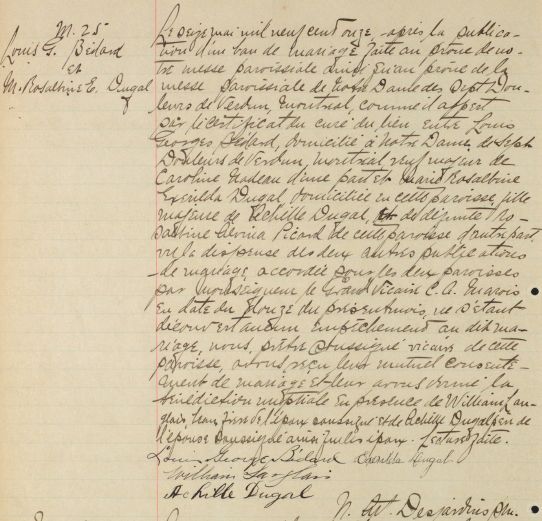 M. 25
Louis G. Bédard
et
M. Rosalbine E. Dugal
Le seize mai mil neuf cent onze, après la publica-
tion d'un ban de mariage faite au prône de no-
tre messe paroissiale ainsi qu'au prône de la
messe paroissiale de Notre Dame des Sept Dou-
leurs de Verdun, Montréal, comme il appert
par le certificat du curé du lieu entre Louis
Georges Bédard, domicilié à Notre Dame des Sept
Douleurs de Verdun, Montréal veuf majeur de
Caroline Nadeau d'une part et Marie Rosalbine
Exerilda Dugal, domiciliée en cette paroisse, fille
majeure de Achille Dugal, et de défunte Ro-
Picard de cette paroisse d'autre part,
vu la dispense des deux autres publications
de mariage accordée pour les deux paroisses
par Monseigneur le Grand Vicaire C. A. Marois
en date du douze du présent mois, ne s'étant
découvert aucun empêchement au dit ma-
riage, nous, prêtre soussigné vicaire de cette
paroisse, avons reçu leur mutuel consente-
ment de mariage et leur avons donné la
bénédiction nuptiale en présence de William Lan-
glais, de l'époux soussigné et de Achille Dugal père de
l'épouse soussigné ainsi que les époux. Lecture faite.
Louis George Bédard Exerilda Dugal
William Langlais
Achille Dugal
Desjardins Ptre.